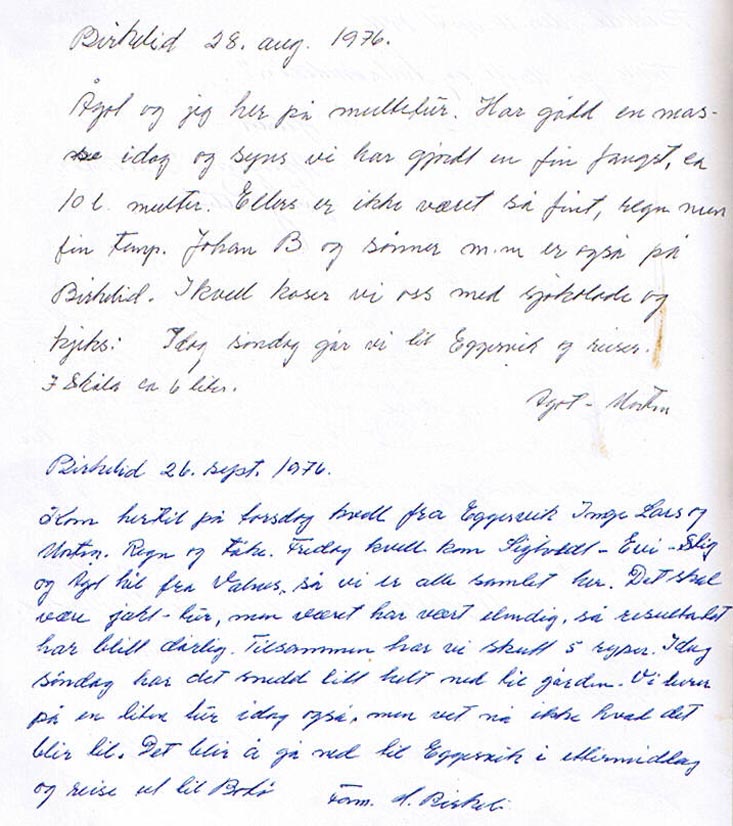 Birkelid 28. aug. 1976.
Ågot og jeg her på multetur. Har gådd en mas-
se idag og syns vi har gjordt en fin fangst, ca
10 l. multer. Ellers er ikke været så fint, regn men
fin temp. Johan B og sønner m.m er også på
Birkelid. Ikvell koser vi oss med sjokolade og
kjeks! Idag søndag går vi til Eggesvik og reiser.
I Skåla ca 6 liter.
Ågot - Morten
Birkelid 26. sept. 1976.
Kom hertil på torsdag kvell fra Eggesvik Inge Lars og
Morten. Regn og tåke. Fredag kvell kom Sigtvedt - Evi - Stig
og Ågot hit fra Valnes, så vi er alle samlet her. Det skal
være jakt-tur, men været har vært elendig, så resultatet
har blitt dårlig. Tilsammen har vi skutt 5 ryper. Idag
søndag har det snedd litt helt ned til gården. Vi lurer
på en liten tur idag også, men vet nå ikke hvad det
blir til. Det blir å gå ned til Eggesvik i ettermiddag
og reise ut til Bodø Fam. H. Birkeli